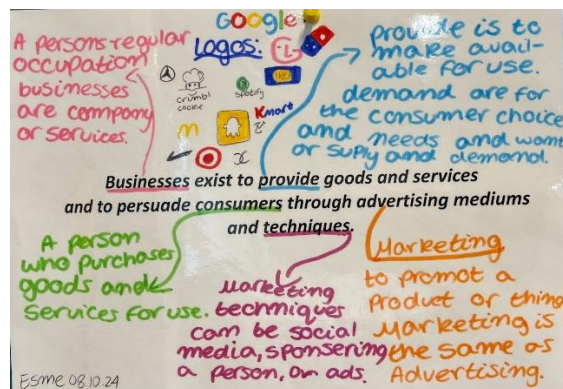 Google
Logos:
IKEA
crumbl
cookie
Spotify
Kmart
A persons regular
occupation
businesses
are company
or services.
provide is to
make avail-
able for use.
demand are for
the consumer choice
and needs and want
or suply and demand.
Businesses exist to provide goods and services
and to persuade consumers through advertising mediums
and techniques.
A person
who purchases
goods and
services for use.
Marketing
techniques
can be social
media, sponsering
a person, on ads.
Marketing,
to promot a
Product or thing
Marketing is
the same as
Advertising.
Esme 08.10.24